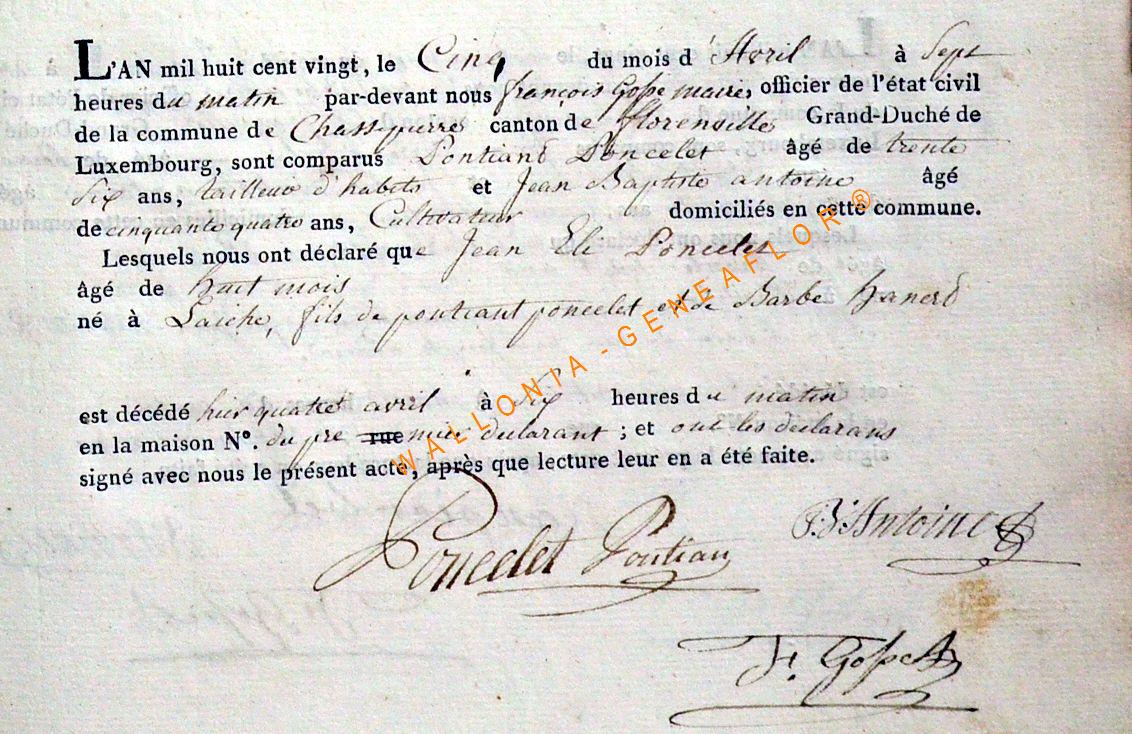 L'AN mil huit cent vingt, le Cinq du mois d'Avril à Sept
heures du matin par-devant nous françois Gosse maire, officier de l'état civil
de la commune de Chassepierre canton de florenville Grand-Duché de
Luxembourg, sont comparus Pontiand Poncelet âgé de trente
Six ans, tailleur d'habets et Jean Baptiste antoine âgé
de cinquante quatre ans, Cultivateur domiciliés en cette commune.
Lesquels nous ont déclaré que Jean Eli Poncelet
âgé de huit mois
né à Laiche, fils de pontiant poncelet et de Barbe
est décédé hier quatre avril à Six heures du matin
en la maison N°. du pre rue mier declarant ; et ont les déclarans
signé avec nous le présent acte, après que lecture leur en a été faite.
Poncelet Pontian
J.B. Antoine
F. Gosse
WALLONIA - GENEAFLOR ®